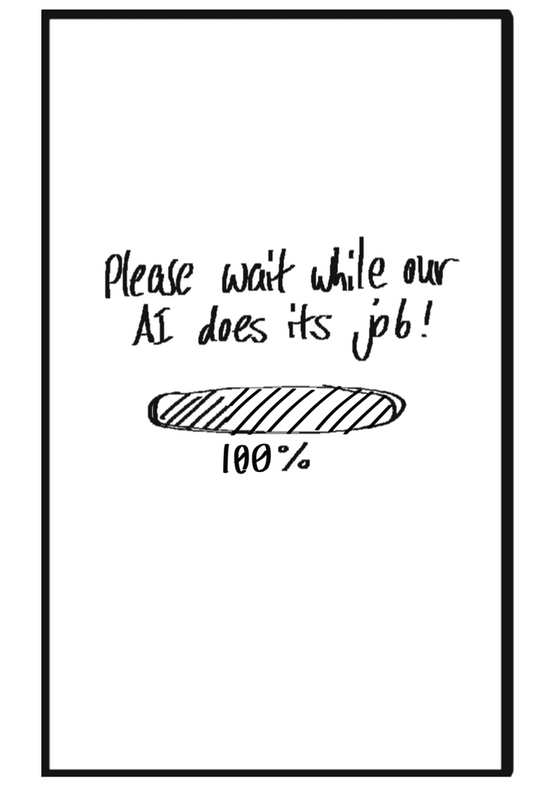 Please wait while our
AI does its job!
100%